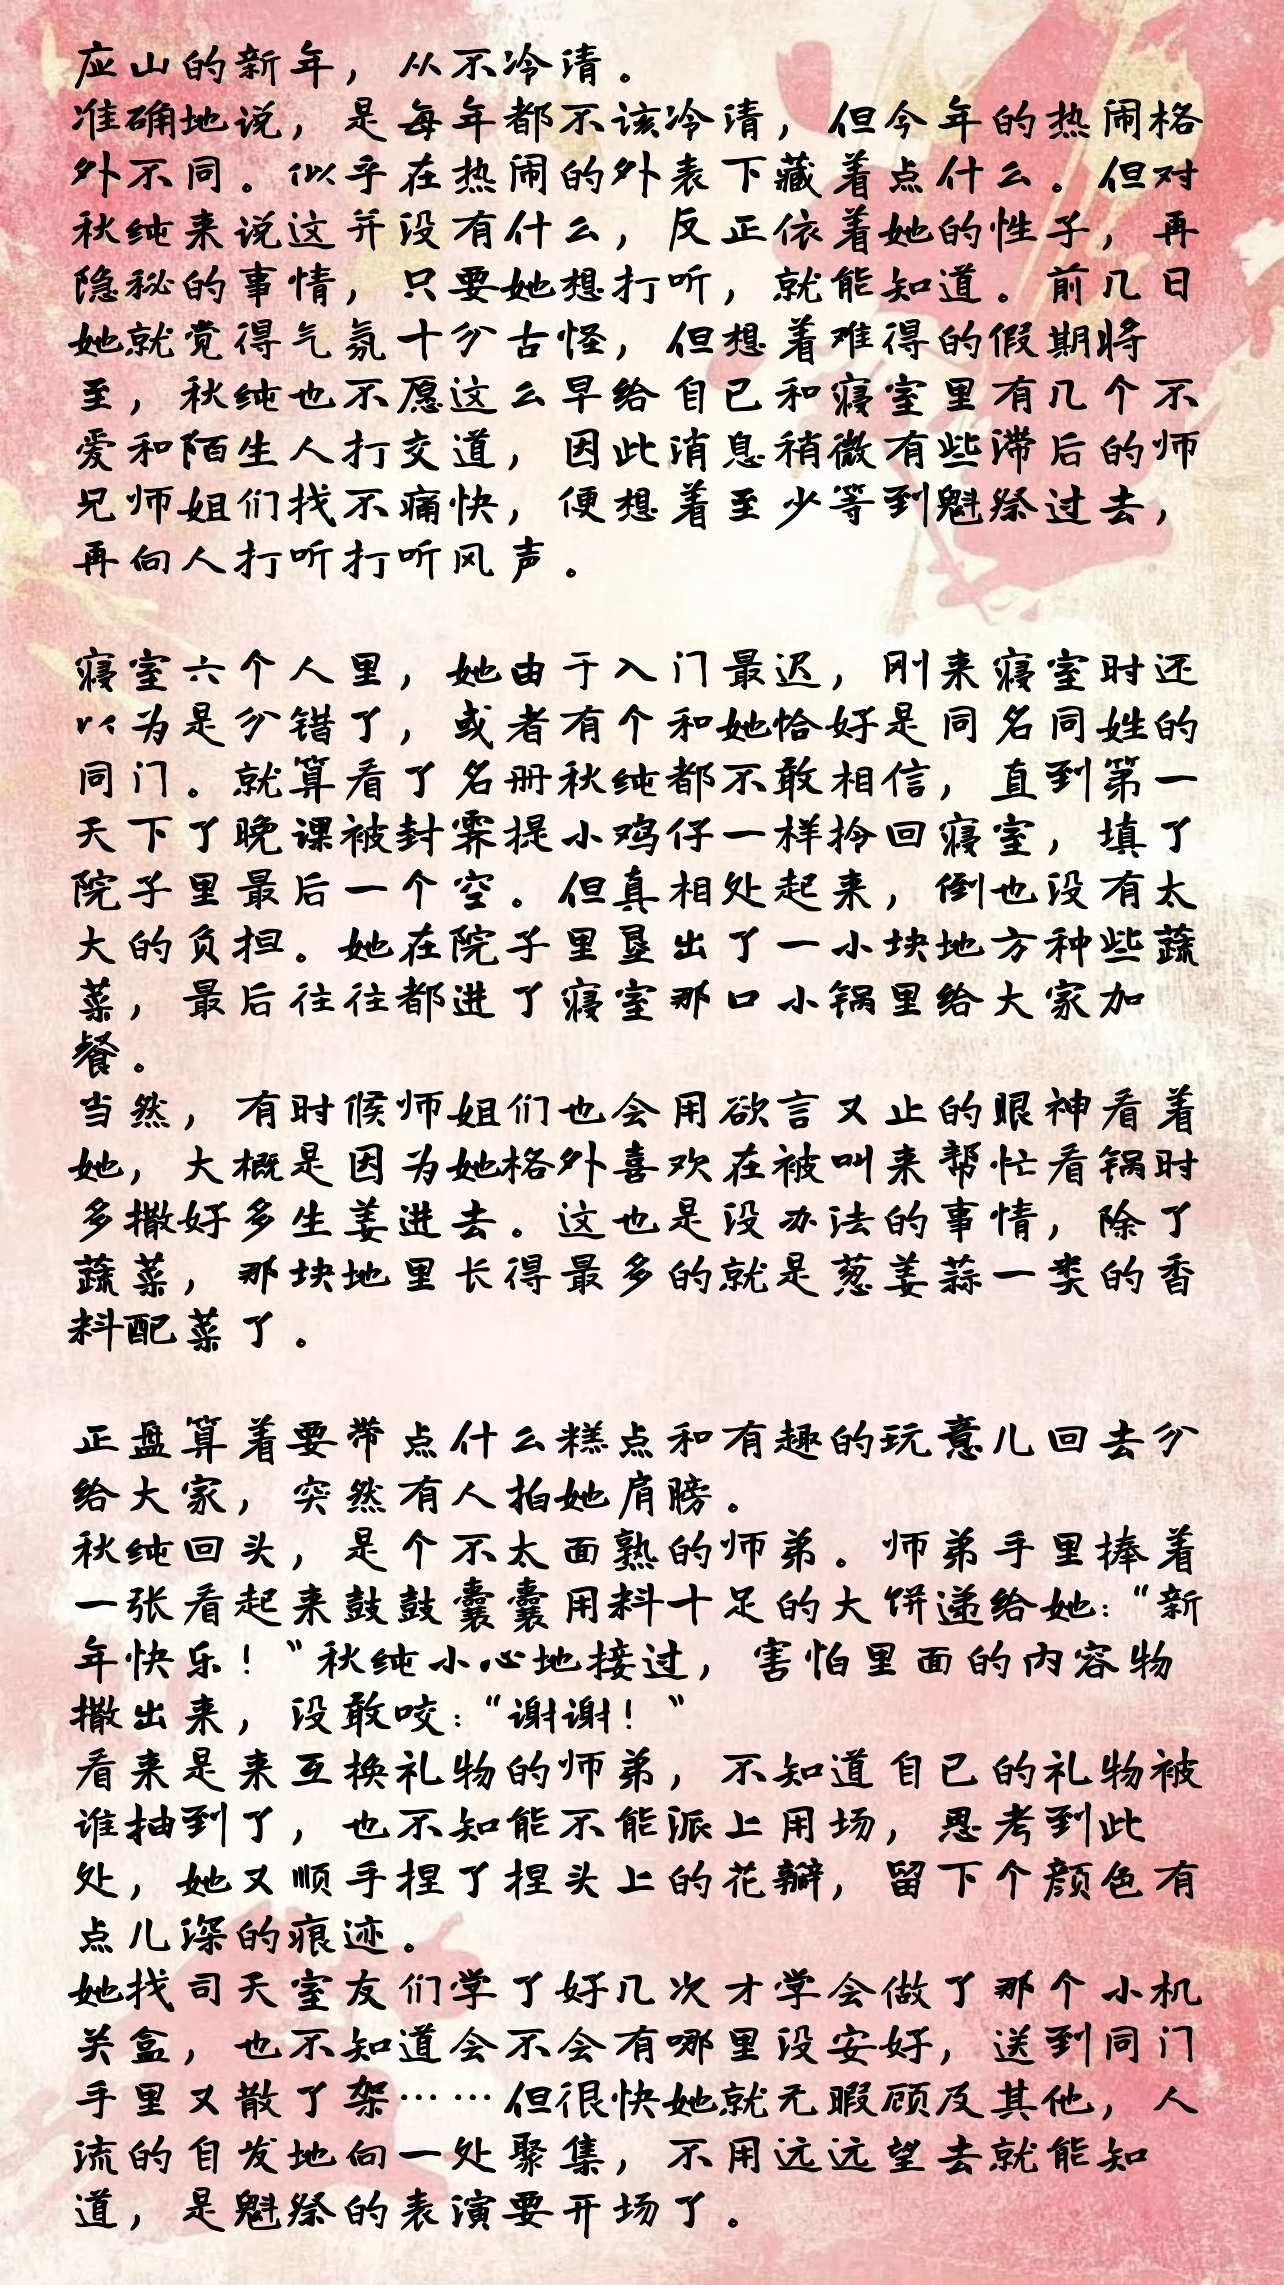 应山的新年，从不冷清。
准确地说，是每年都不该冷清，但今年的热闹格
外不同。似乎在热闹的外表下藏着点什么。但对
秋纯来说这并没有什么，反正依着她的性子，再
隐秘的事情，只要她想打听，就能知道。前几日
她就觉得气氛十分古怪，但想着难得的假期将
至，秋纯也不愿这么早给自己和寝室里有几个不
爱和陌生人打交道，因此消息稍微有些滞后的师
兄师姐们找不痛快，便想着至少等到魁祭过去，
再向人打听打听风声。
寝室六个人里，她由于入门最迟，刚来寝室时还
以为是分错了，或者有个和她恰好是同名同姓的
同门。就算看了名册秋纯都不敢相信，直到第一
天下了晚课被封霁提小鸡仔一样拎回寝室，填了
院子里最后一个空。但真相处起来，倒也没有太
大的负担。她在院子里垦出了一小块地方种些蔬
菜，最后往往都进了寝室那口小锅里给大家加
餐。
当然，有时候师姐们也会用欲言又止的眼神看着
她，大概是因为她格外喜欢在被叫来帮忙看锅时
多撒好多生姜进去。这也是没办法的事情，除了
蔬菜，那块地里长得最多的就是葱姜蒜一类的香
料配菜了。
正盘算着要带点什么糕点和有趣的玩意儿回去分
给大家，突然有人拍她肩膀。
秋纯回头，是个不太面熟的师弟。师弟手里捧着
一张看起来鼓鼓囊囊用料十足的大饼递给她：“新
年快乐！”秋纯小心地接过，害怕里面的内容物
撒出来，没敢咬：“谢谢！”
看来是来互换礼物的师弟，不知道自己的礼物被
谁抽到了，也不知能不能派上用场，思考到此
处，她又顺手捏了捏头上的花瓣，留下个颜色有
点儿深的痕迹。
她找司天室友们学了好几次才学会做了那个小机
关盒，也不知道会不会有哪里没安好，送到同门
手里又散了架……但很快她就无暇顾及其他，人
流的自发地向一处聚集，不用远远望去就能知
道，是魁祭的表演要开场了。